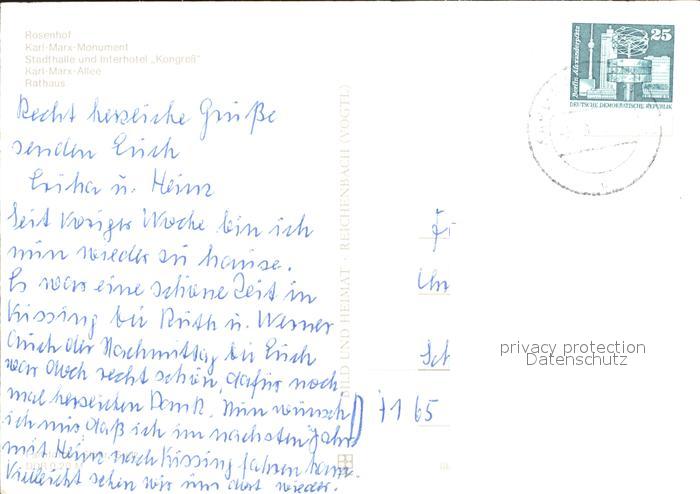 Rosenhof
Karl-Marx-Monument
Stadthalle und Interhotel „Kongreß“
Karl-Marx-Allee
Rathaus
Recht herzliche Grüße
senden Euch
Erika u. Heinz
Seit voriger Woche bin ich
nun wieder zu hause.
Es war eine schöne Zeit in
Kissing bei Ruth u. Werner
Auch der Nachmittag bei Euch
war doch recht schön, dafür noch
mal herzlichen Dank. Nun wünsch
ich mir daß ich im nächsten Jahr
mit Heinz nach Kissing fahren kann.
Vielleicht sehen wir uns dort wieder.
BILD UND HEIMAT · REICHENBACH (VOGTL)
Berlin, Alexanderplatz
25
DEUTSCHE DEMOKRATISCHE REPUBLIK
privacy protection
Datenschutz